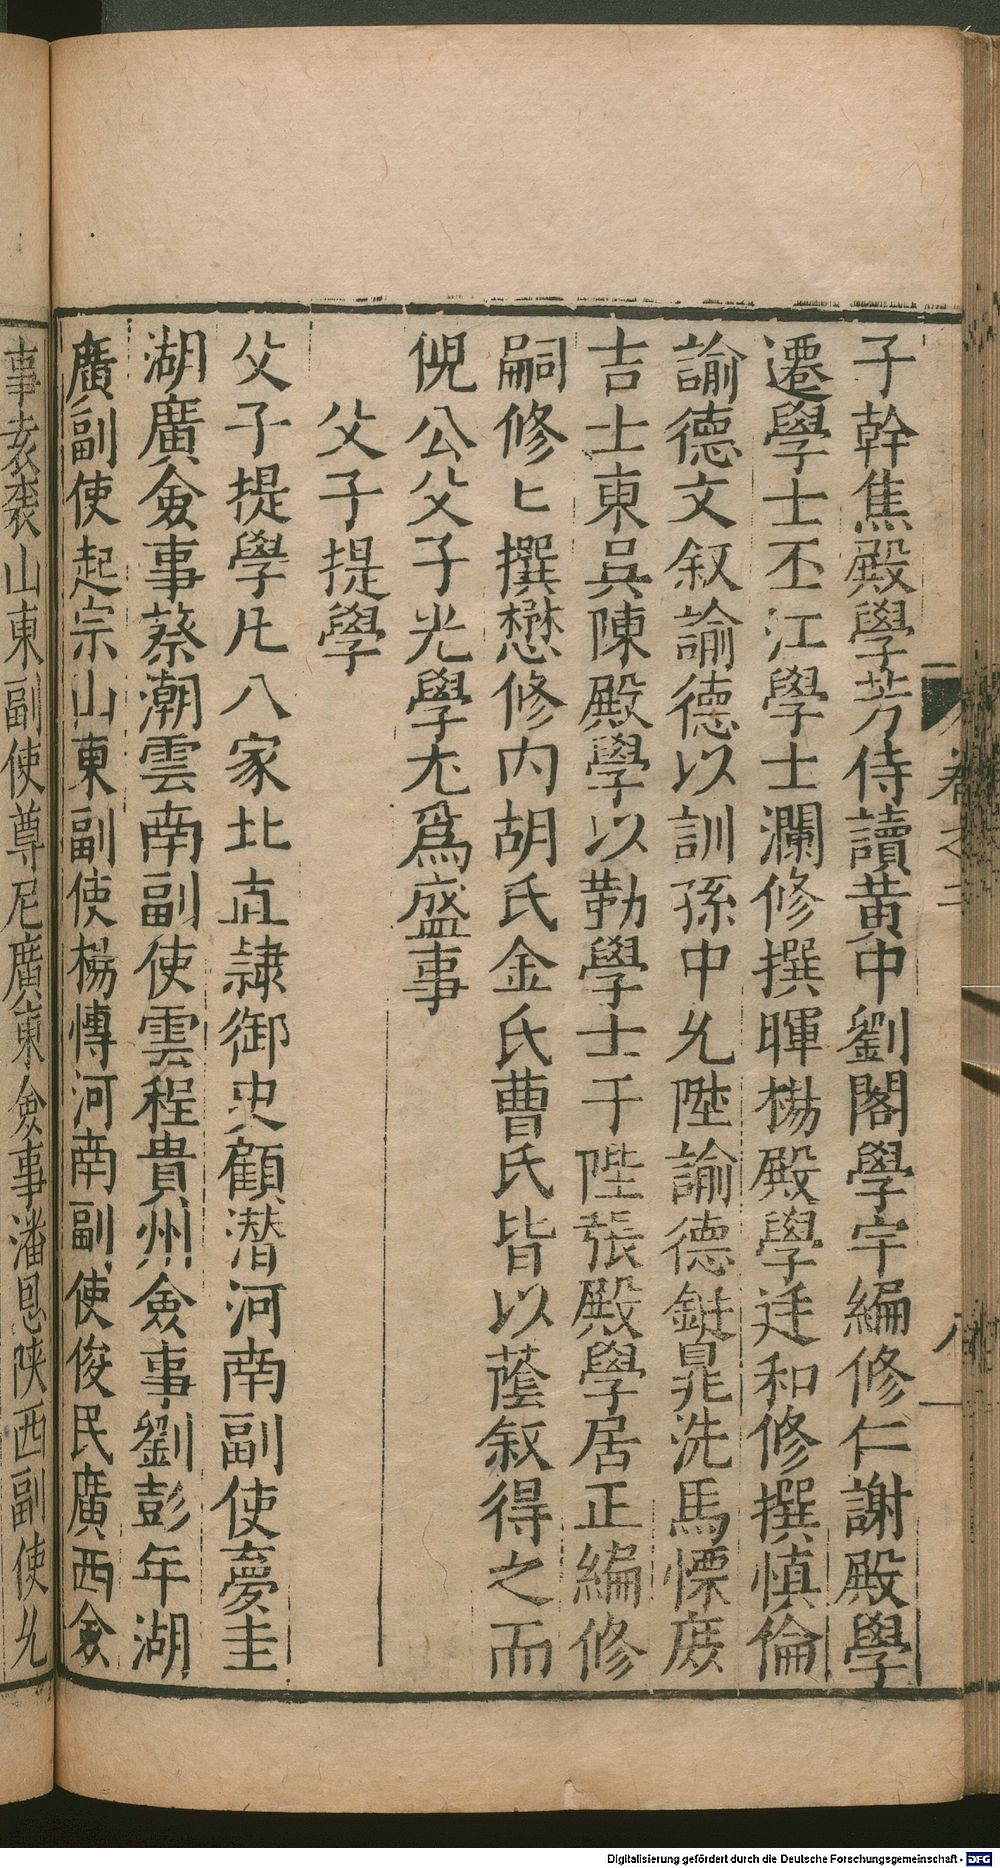 子幹焦殿學芳侍讀黃中劉閣學宇編修仁謝殿學
遷學士丕江學士瀾修撰暉楊殿學廷和修撰慎倫
諭德文叙諭德以訓孫中允陞諭德鋌晁洗馬㮚庶
吉士東吳陳殿學以勤學士于陛張殿學居正編修
嗣修匕撰懋修内胡氏金氏曹氏皆以蔭叙得之而
倪公父子光學尤爲盛事
父子提學
父子提學凡八家北直隷御史顧潛河南副使夢圭
湖廣僉事蔡潮雲南副使雲程貴州僉事劉彭年湖
廣副使起宗山東副使楊愽河南副使俊民廣西僉
事袁袠山東副使尊尼廣東僉事潘恩陝西副使允
卷之二
八
Digitalisierung gefördert durch die Deutsche Forschungsgemeinschaft - DFG